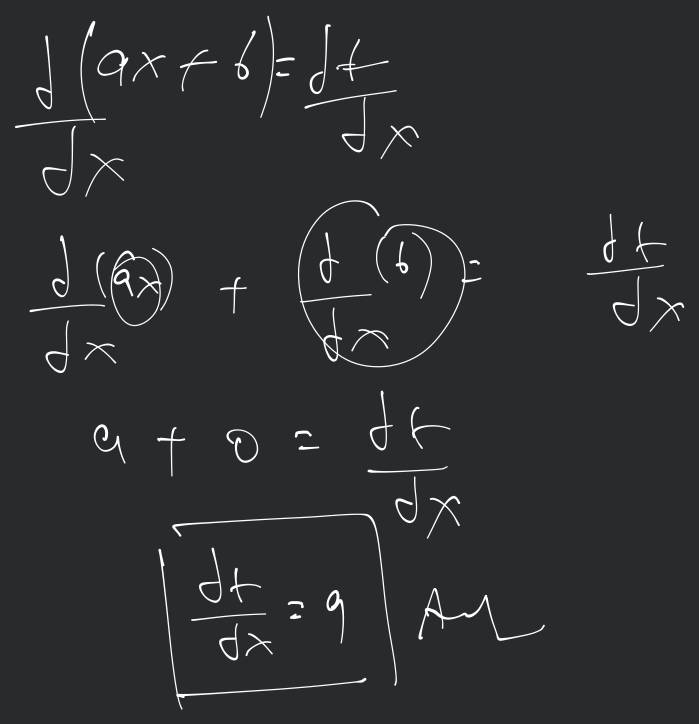 d/dx (ax + b) = dt/dx
d/dx (ax) + d/dx (b) = dt/dx
a + 0 = dt/dx
dt/dx = a Ans